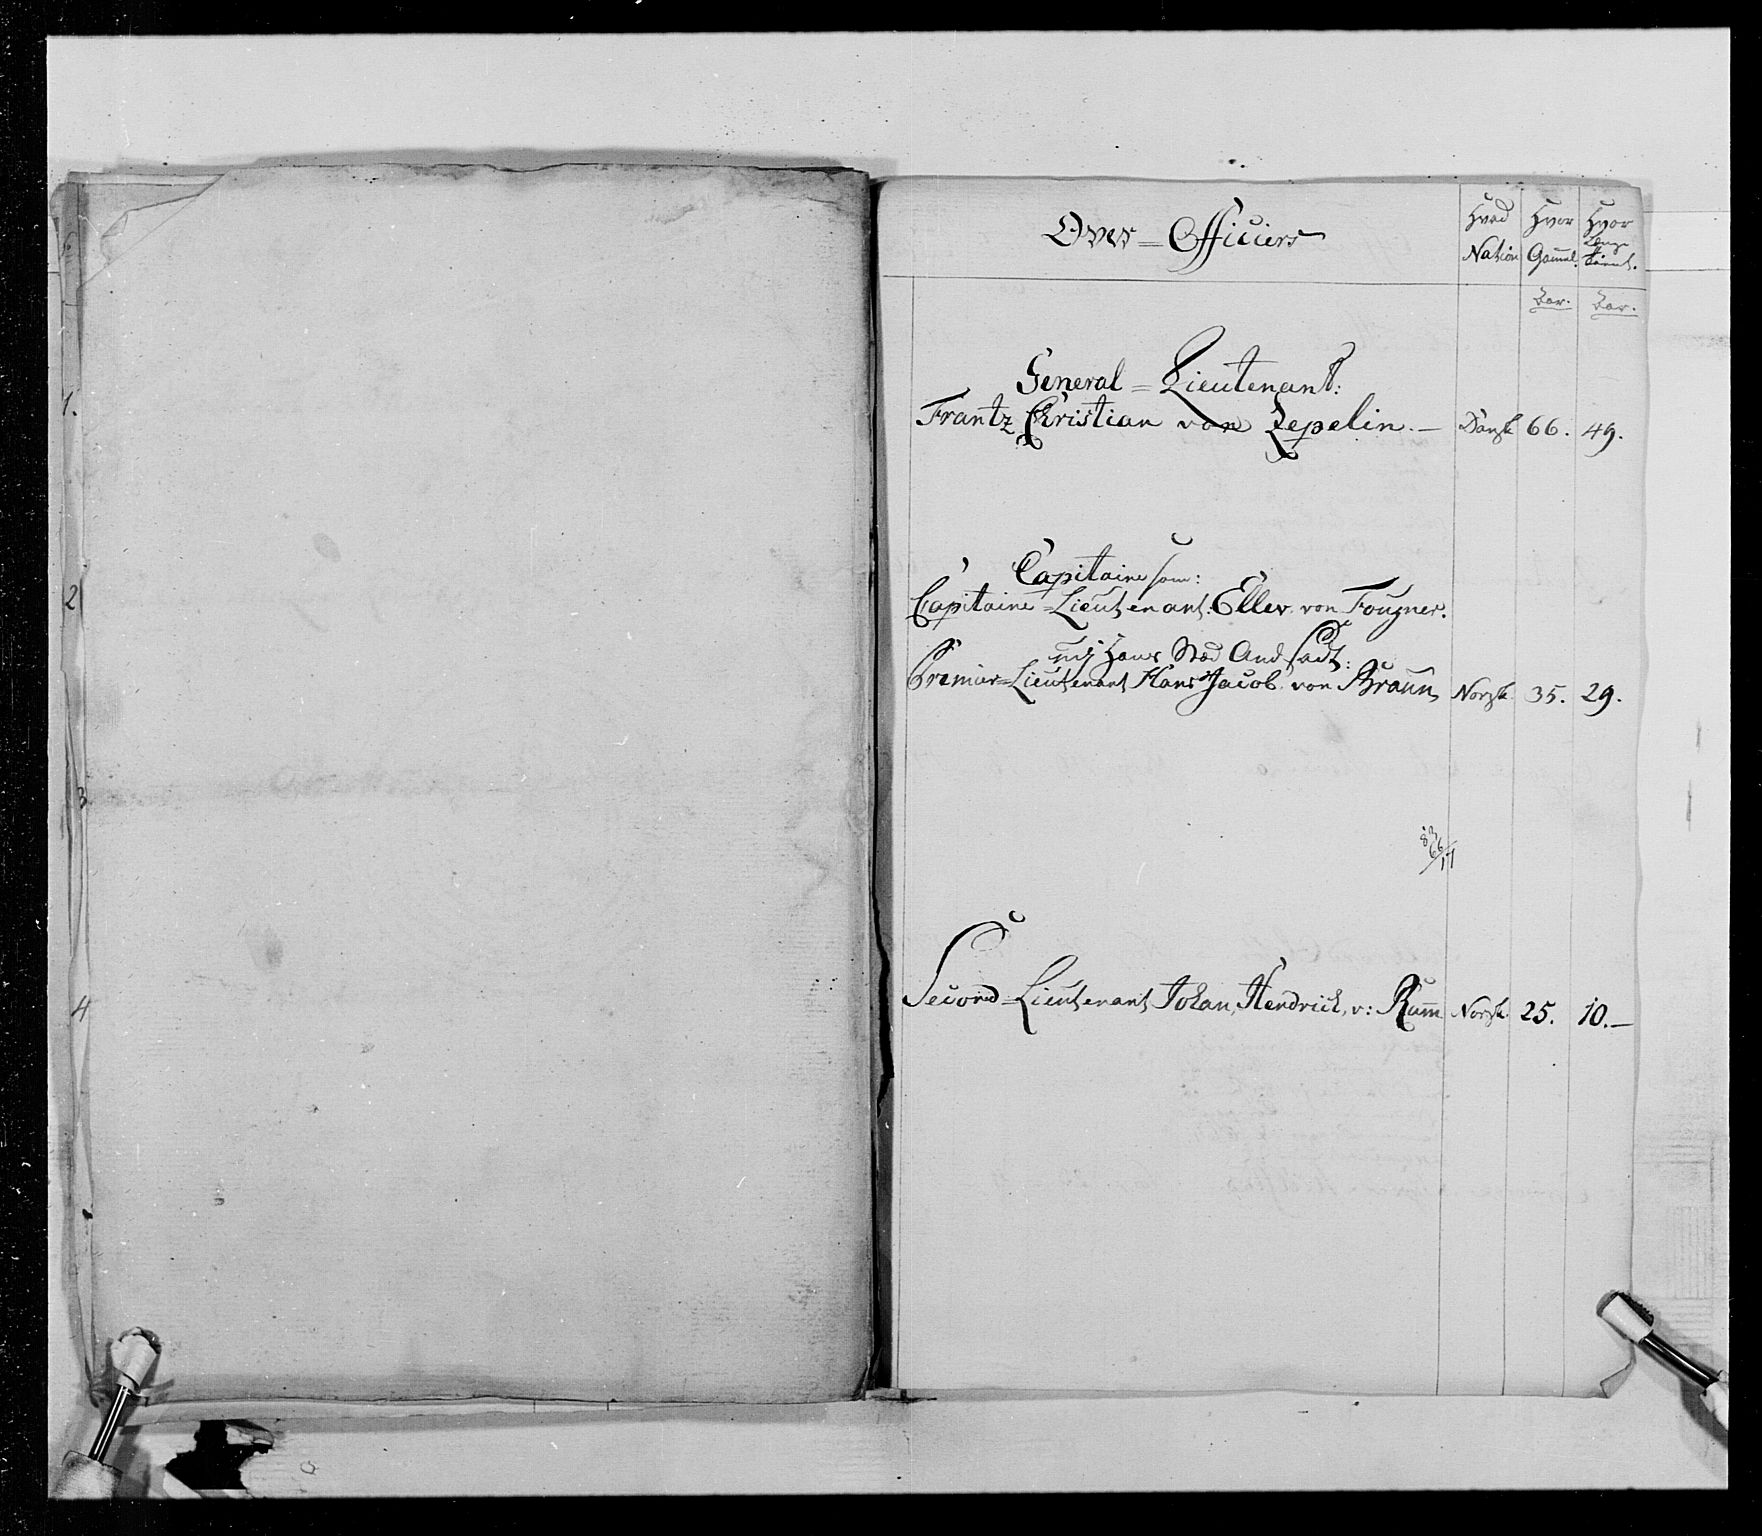 Over=Officiers
Hvad Nation
Hvor Gammel.
Hvor Længe tient.
Aar. Aar.
1.
General=Lieutenant:
Frantz Christian von Zepelin.— Dansk 66. 49.
2
Capitaine som:
Capitaine=Lieutenant: Eller von Fougner.
Hans And
Premier=Lieutenant Hans Jacob von Braun, Norsk 35. 29.
3
4
Second=Lieutenant Johan Hendrick v: Ramm Norsk. 25. 10.—